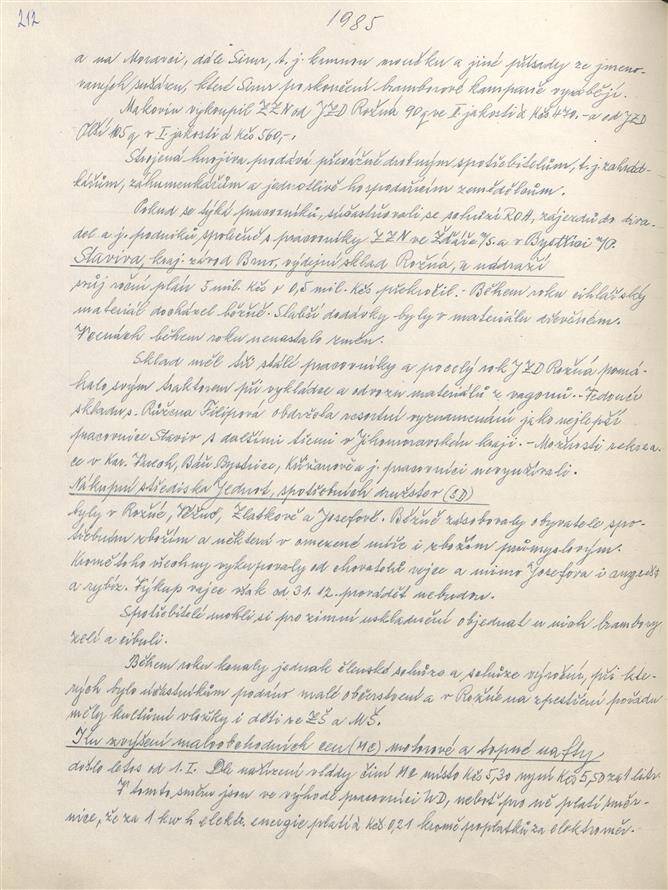 212
1985
a na Moravci, dále Sinu, t.j. krmnou moučku a jiné přísady ze jmeno-
vaných sušáren, které Sinu po skončení bramborové kampaně vyrábějí.
Makovin vykoupil ZZN od JZD Rožná 90 q ve II. jakosti à Kčs 470.- a od JZD
q v I. jakosti à Kčs 560,-.
Strojená hnojiva podává převážně drobným spotřebitelům, t.j. zahrád-
kářům, záhumenkářům a jednotlivě hospodařícím zemědělcům.
Pokud se týká pracovníků, súčastňovali se schůzí ROH, zájezdů do diva-
del a j. podniků společně s pracovníky ZZN ve Žďáře n/S. a v Bystřici n/P.
Staviva, kraj. závod Brno, výdejní sklad Rožná, u nádraží
svůj roční plán 5 mil. Kčs o 0,5 mil. Kčs překročil. - Během roku cihlářský
materiál docházel běžně. Slabší dodávky byly v materiálu dřevěném.
V cenách během roku nenastalo změn.
Sklad měl tři stálé pracovníky a po celý rok JZD Rožná pomá-
halo svým traktorem při vykládce a odvozu materiálů z vagonů. - Vedoucí
skladu s. Růžena Filipová obdržela resortní vyznamenání jako nejlepší
pracovnice Staviv s dalšími třemi v Jihomoravském kraji. - Možnosti rekrea-
ce v Kar. Varech, Bystrice, Křižanově a j. pracovníci nevyužívali.
Nákupní střediska Jednot, spotřebních družstev (SD)
byly v Rožné, Věžné, Zlatkově a Josefově. Běžně zásobovaly obyvatele spo-
třebním zbožím a některá v omezené míře i zbožím průmyslovým.
Kromě toho všechny vykupovaly od chovatelů vejce a mimo Josefova i angrešt
a rybíz. Výkup vejce však od 31.12. provádět nebudou.
Spotřebitelé mohli si pro zimní uskladnění objednat u nich brambory,
zelí a cibuli.
Během roku konaly jednak členské schůze a schůze výroční, při kte-
rých bylo účastníkům podáno malé občerstvení a v Rožné na zpestření pořadu
měly kulturní vložky i děti ze ZŠ a MŠ.
Ku zvýšení maloobchodních cen (MC) motorové a topné nafty
došlo letos od 1.I. Dle nařízení vlády činí MC místo Kčs 5,30 nyní Kčs 5,50 za 1 litr.
V tomto směru jsou ve výhodě pracovníci UD, neboť pro ně platí směr-
nice, že za 1 kwh elektr. energie platí à Kčs 0,21 kromě poplatků za elektroměr.